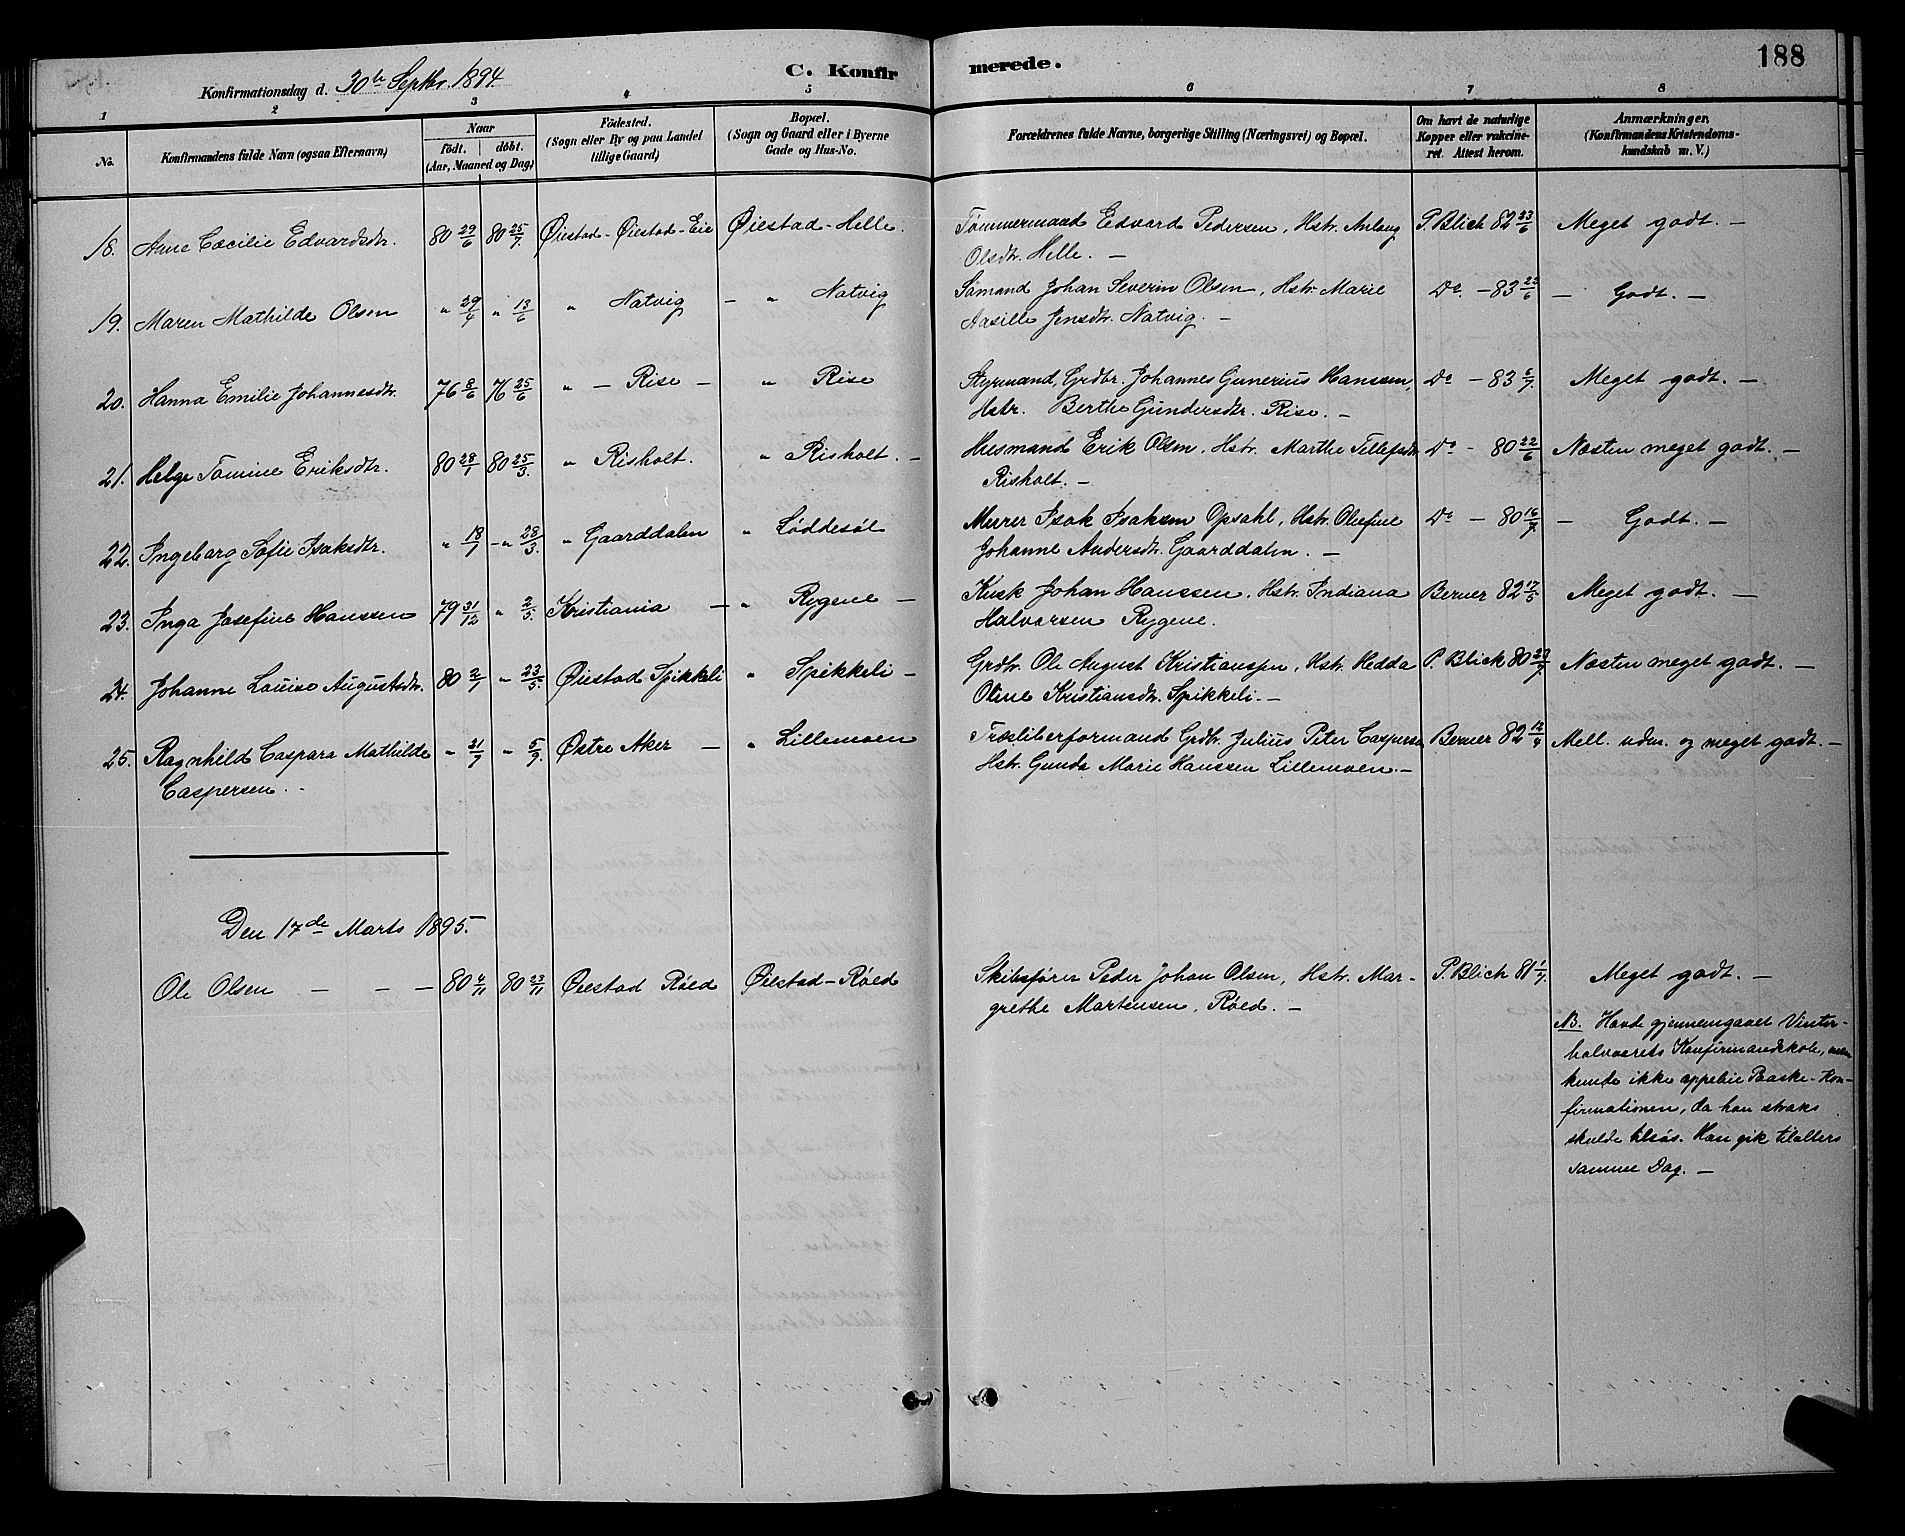 188
Konfirmationsdag d. 30te Septbr. 1894.
C. Konfirmerede.
1 2 3 4 5 6 7 8
No. Konfirmandens fulde Navn (ogsaa Efternavn) Naar født. døbt. (Aar, Maaned og Dag) Fødested. (Sogn eller By og paa Landet tillige Gaard) Bopæl. (Sogn og Gaard eller i Byerne Gade og Hus-No. Forældrenes fulde Navne, borgerlige Stilling (Næringsvei) og Bopæl. Om havt de naturlige Kopper eller vakcineret. Attest herom. Anmærkninger. (Konfirmandens Kristendomskundskab m. V.)
18. Anne Cæcilie Edvardsdtr. 80 29/6 80 25/7 Øiestad-Øiestad-Eie Øiestad-Helle. Tømmermand Edvard Pedersen, Hstr. Anlaug P. Blich 82 23/6 Meget godt. –
Olsdtr. Helle. –
19. Maren Mathilde Olsen " 29/4 " 13/6 " Natvig – " Natvig Sømand Johan Severin Olsen, Hstr. Marie Do. – 83 23/6 – Godt. –
Aasille Jensdtr. Natvig. –
20. Hanna Emilie Johannesdtr. 76 8/6 76 25/6 " – Rise – " Rise Styrmand, Grdbr. Johannes Gunerius Hanssen, Do – 83 6/7 Meget godt. –
Hstr. Berthe Gundersdtr. Rise. –
21. Helge Tomine Eriksdtr. 80 28/1 80 25/3. " Risholt. " Risholt. – Husmand Erik Olsen, Hstr. Marthe Tellefsdtr. Do – 80 22/6 Næsten meget godt. –
Risholt. –
22. Ingeborg Sofie Isaksdtr. " 18/1 – " 28/3. " Gaarddalen " Løddesøl Murer Isak Isaksen Opsahl, Hstr. Olufine Do – 80 16/7 – Godt. –
Johanne Andersdtr. Gaarddalen. –
23. Inga Josefine Hanssen 79 31/12 " 2/5. Kristiania – " Rygene – Kusk Johan Hanssen, Hstr. Indiana Berner 82 17/5 Meget godt. –
Halvorsen Rygene.
24. Johanne Louise Augustsdtr. 80 2/1 " 23/5. Øiestad Spikkeli " Spikkeli – Grdbr. Ole August Kristianssen, Hstr. Hedda P. Blich 80 23/7. Næsten meget godt. –
Oline Kristiansdtr. Spikkeli. –
25. Ragnhild Caspara Mathilde " 31/7 " 5/9. Østre Aker – " Lillemoen Træsliberformand Grdbr. Julius Peter Caspersen Berner 82 12/4 Mell. udm. og meget godt. –
Caspersen. Hstr. Gunda Marie Hanssen Lillemoen. –
Den 17de Marts 1895.
Ole Olsen – – – 80 4/11 80 23/11 Øiestad Røed Øiestad-Røed Skibsfører Peder Johan Olsen, Hstr. Mar- P. Blich 81 1/7. Meget godt. –
grethe Martensen, Røed. –
NB. Havde gjennemgaaet Vinter-
halvaarets Konfirmandskole, men
kunde ikke oppebie Paaske-Kon-
firmationen, da han straks
skulde tilsøs. Han gik tilalters
samme Dag. –